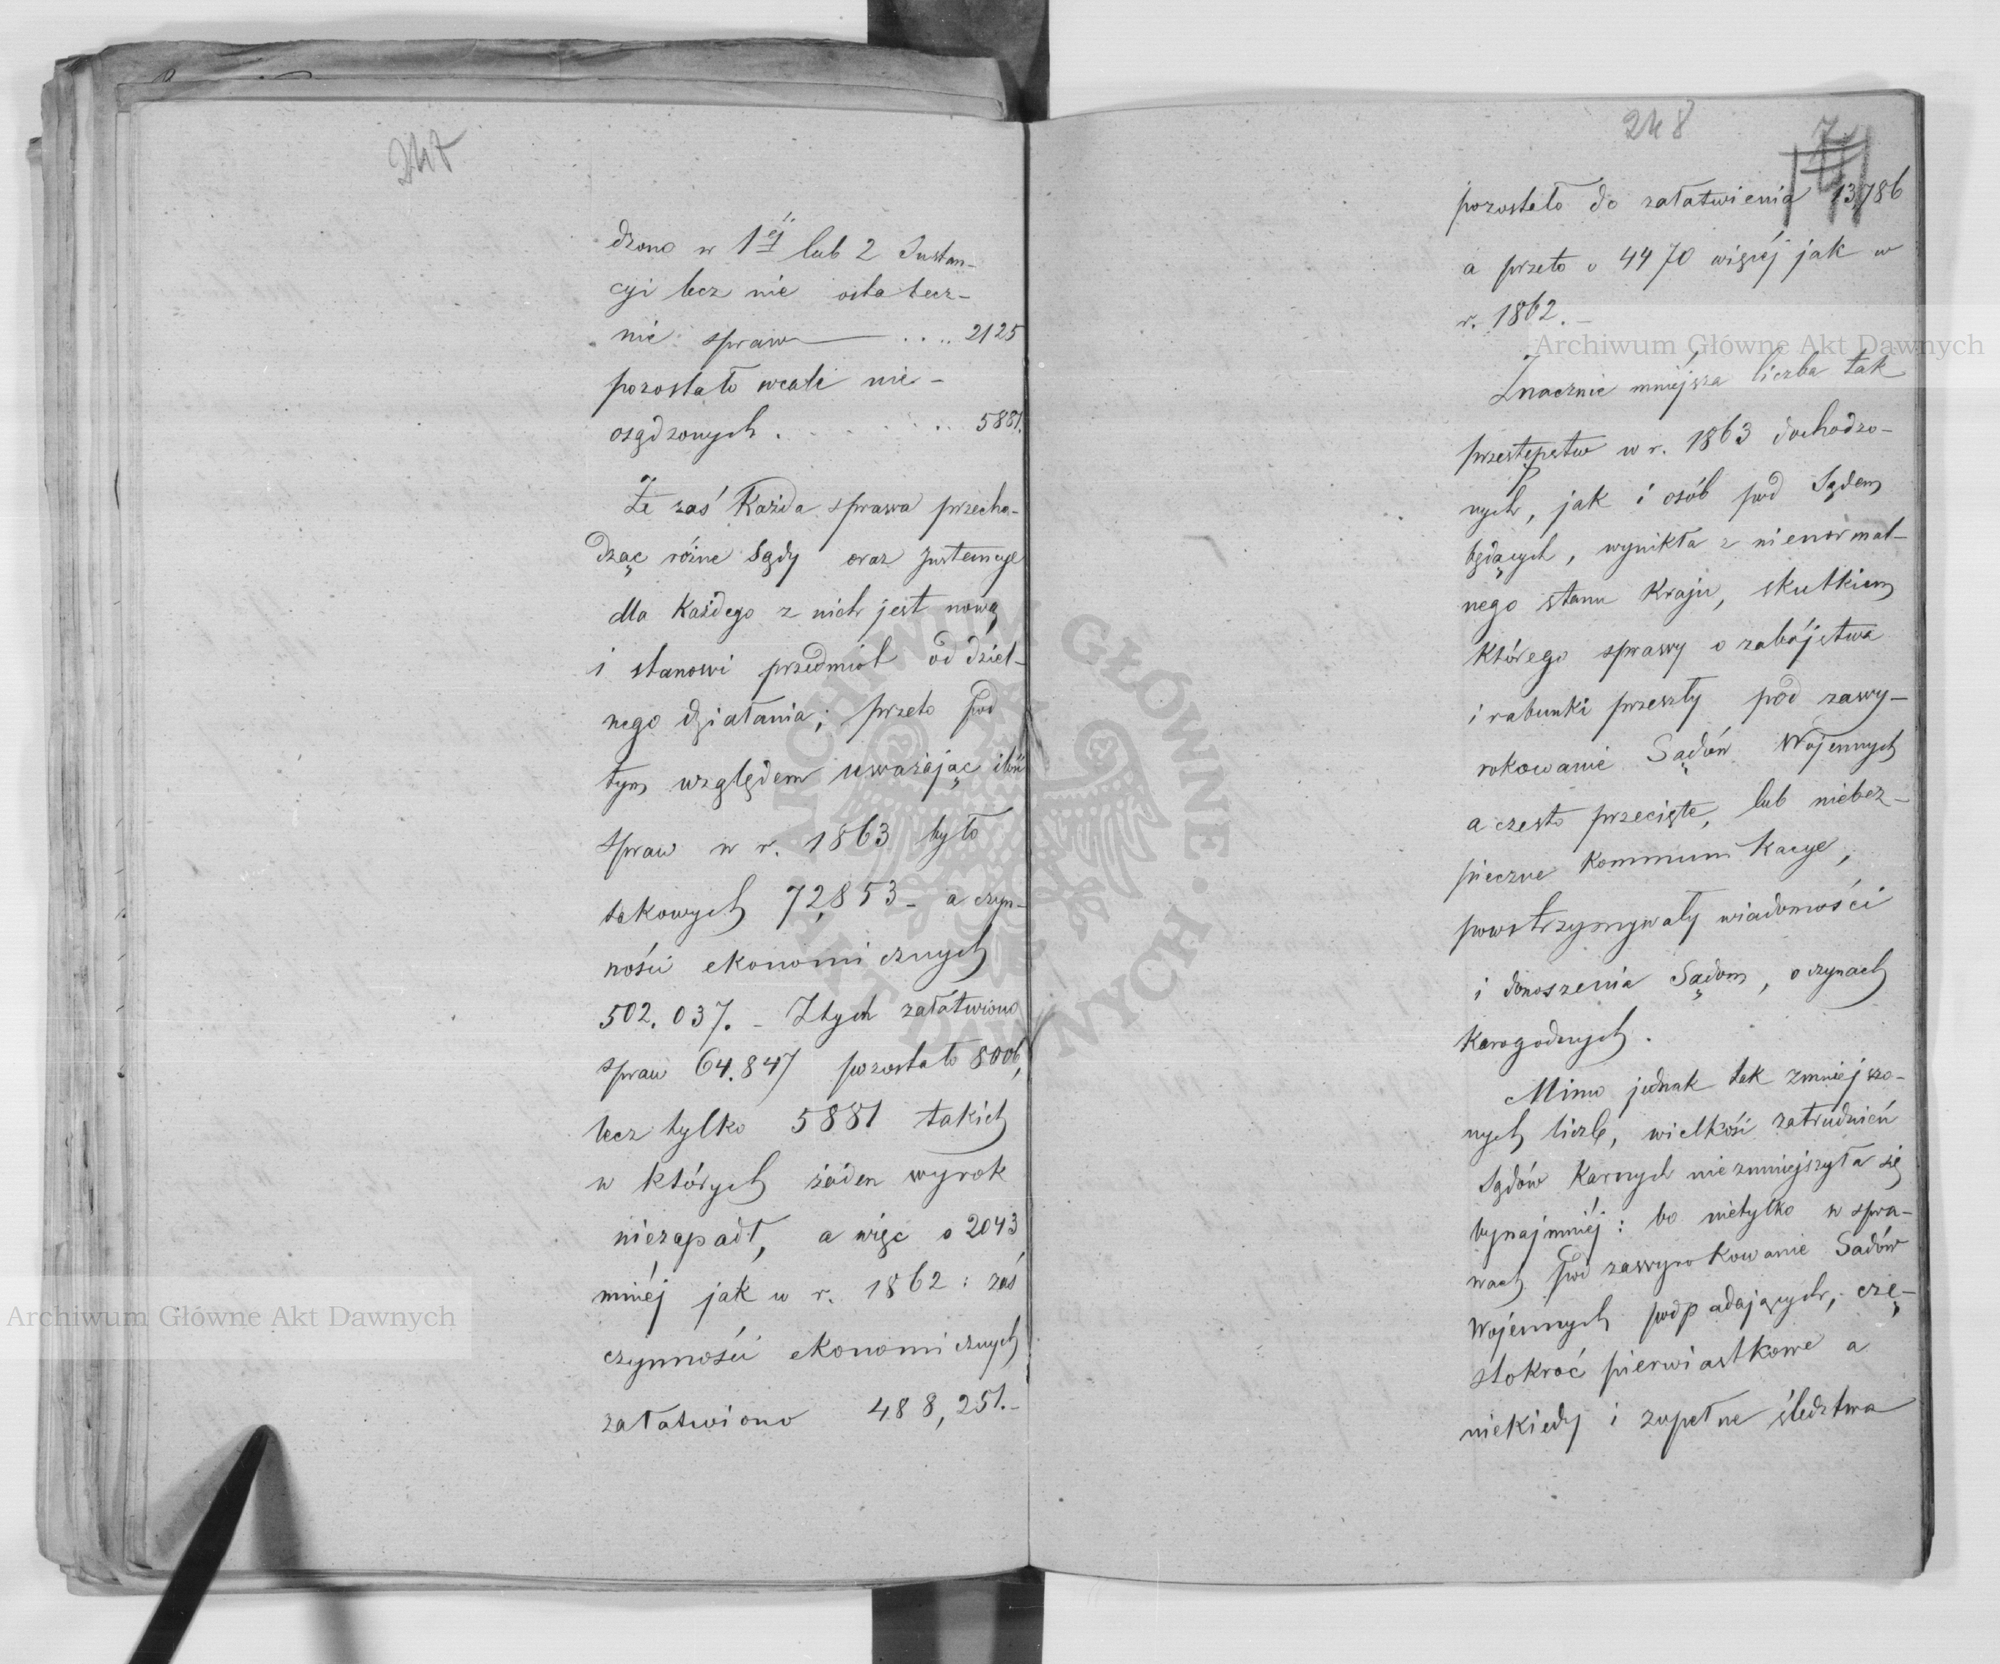 247
dzono w 1éj lub 2 Instan-
cyi lecz nie ostatecz-
nie spraw — . . .. 2125
pozostało wcale nie-
osądzonych . . . . . . 5881.
Że zaś każda sprawa przecho-
dząc różne Sądy oraz Instancye
dla każdego z nich jest nową
i stanowi przedmiot oddziel-
nego działania; przeto pod
tym względem uważając ilość
spraw w r. 1863 było
takowych 72,853 – a czyn-
ności ekonomicznych
502.037. – Z tych załatwiono
spraw 64.847 pozostało 8006,
lecz tylko 5881 takich
w których żáden wyrok
niezapadł, a więc o 2043
mniéj jak w r. 1862: zaś
czynności ekonomicznych
załatwiono 488,251.–
248
pozostało do załatwienia 13,786
a przeto o 4470 więcéj jak w
r. 1862. –
Znacznie mniejsza liczba tak
przestępstw w r. 1863 dochodzo-
nych, jak i osób pod Sądem
będących, wynikła z nienormal-
nego stanu Kraju, skutkiem
którego sprawy o zabójstwa
i rabunki przeszły pod zawy-
rokowanie Sądów Wojennych
a często przecięte, lub niebez-
pieczne kommunikacye,
powstrzymywały wiadomości
i donoszenia Sądom, o czynach
karogodnych.
Mimo jednak tak zmniejszo-
nych liczb, wielkość zatrudnień
Sądów Karnych niezmniejszyła się
bynajmniéj: bo nietylko w spra-
wach pod zawyrokowanie Sadów
Wojennych podpadających, czę-
stokroć pierwiastkowe a
niekiedy i zupełne śledztwa
Archiwum Główne Akt Dawnych
Archiwum Główne Akt Dawnych
ARCHIWUM GŁÓWNE AKT DAWNYCH